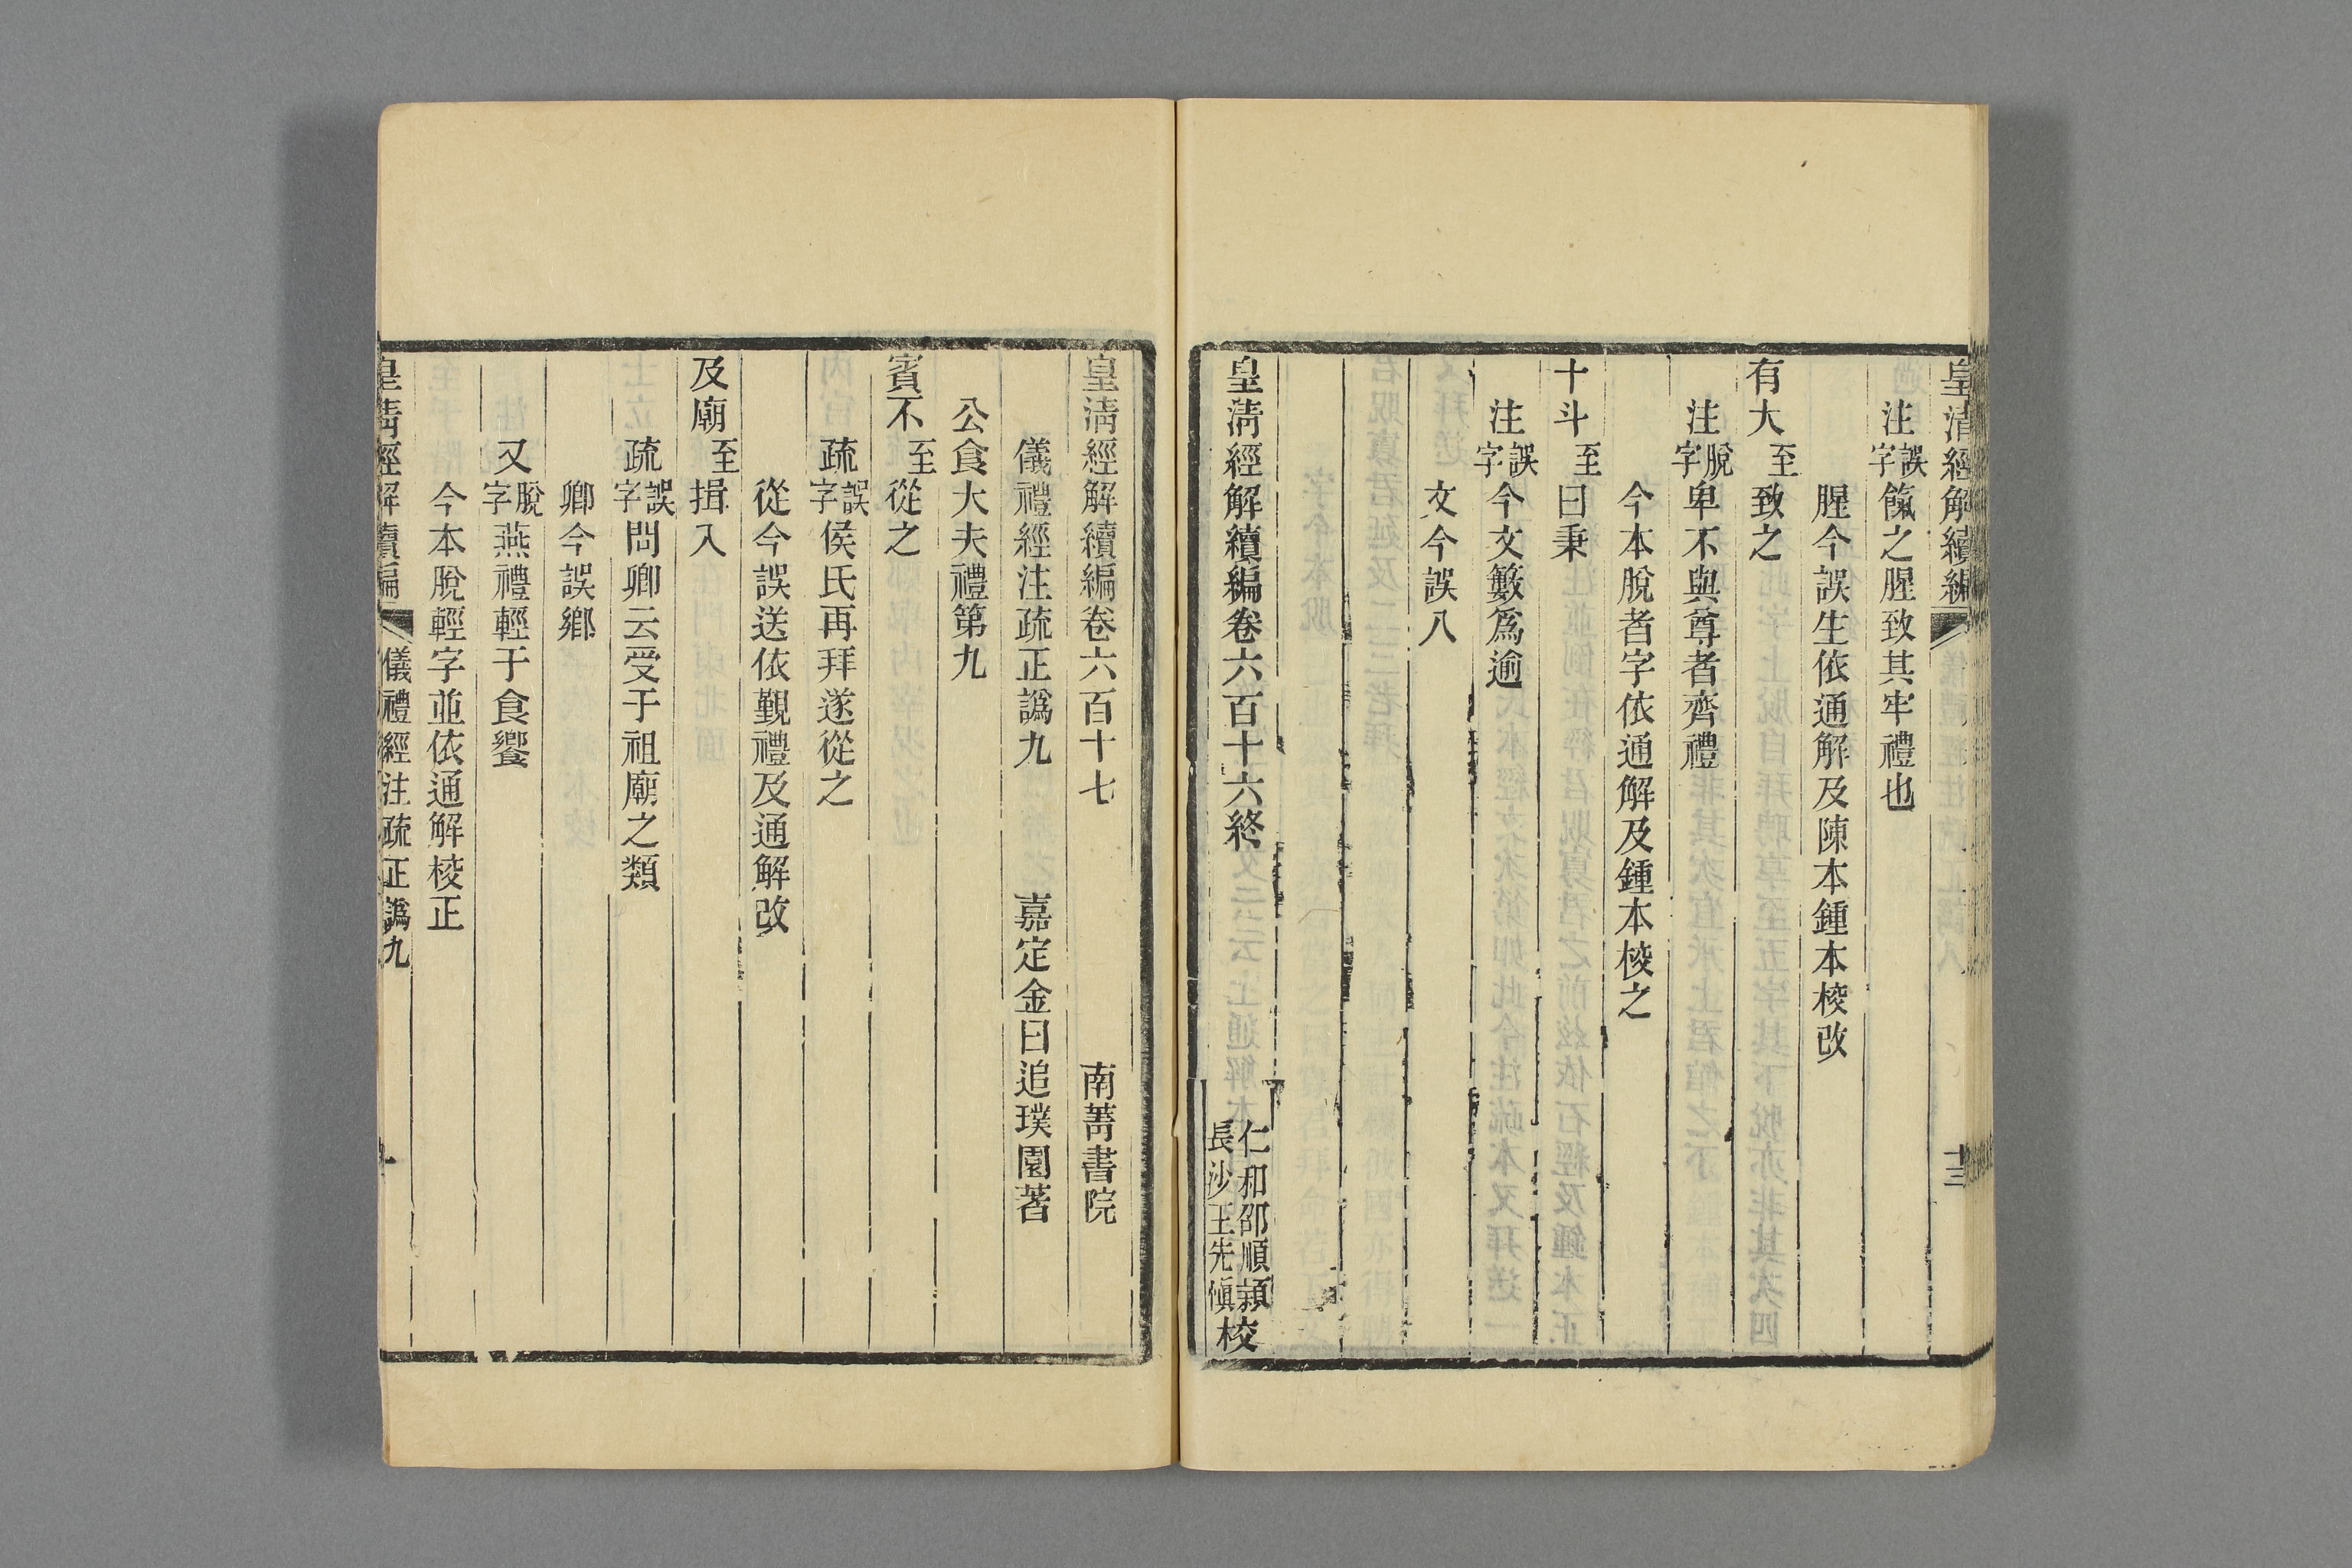 皇清經解續編 十三
注誤字餼之腥致其牢禮也
腥今誤生依通解及陳本鍾本校改
有大至致之
注脫字卑不與尊者齊禮
今本脫者字依通解及鍾本校之
十斗至曰秉
注誤字今文籔爲逾
文今誤八
皇清經解續編卷六百十六終
仁和邵順潁
長沙王先愼校
皇清經解續編卷六百十七 南菁書院
儀禮經注疏正譌九 嘉定金曰追璞園著
公食大夫禮第九
賓不至從之
疏誤字侯氏再拜遂從之
從今誤送依覲禮及通解改
及廟至揖入
疏誤字問卿云受于祖廟之類
卿今誤鄉
又脫字燕禮輕于食饗
今本脫輕字並依通解校正
皇清經解續編 儀禮經注疏正譌九 一